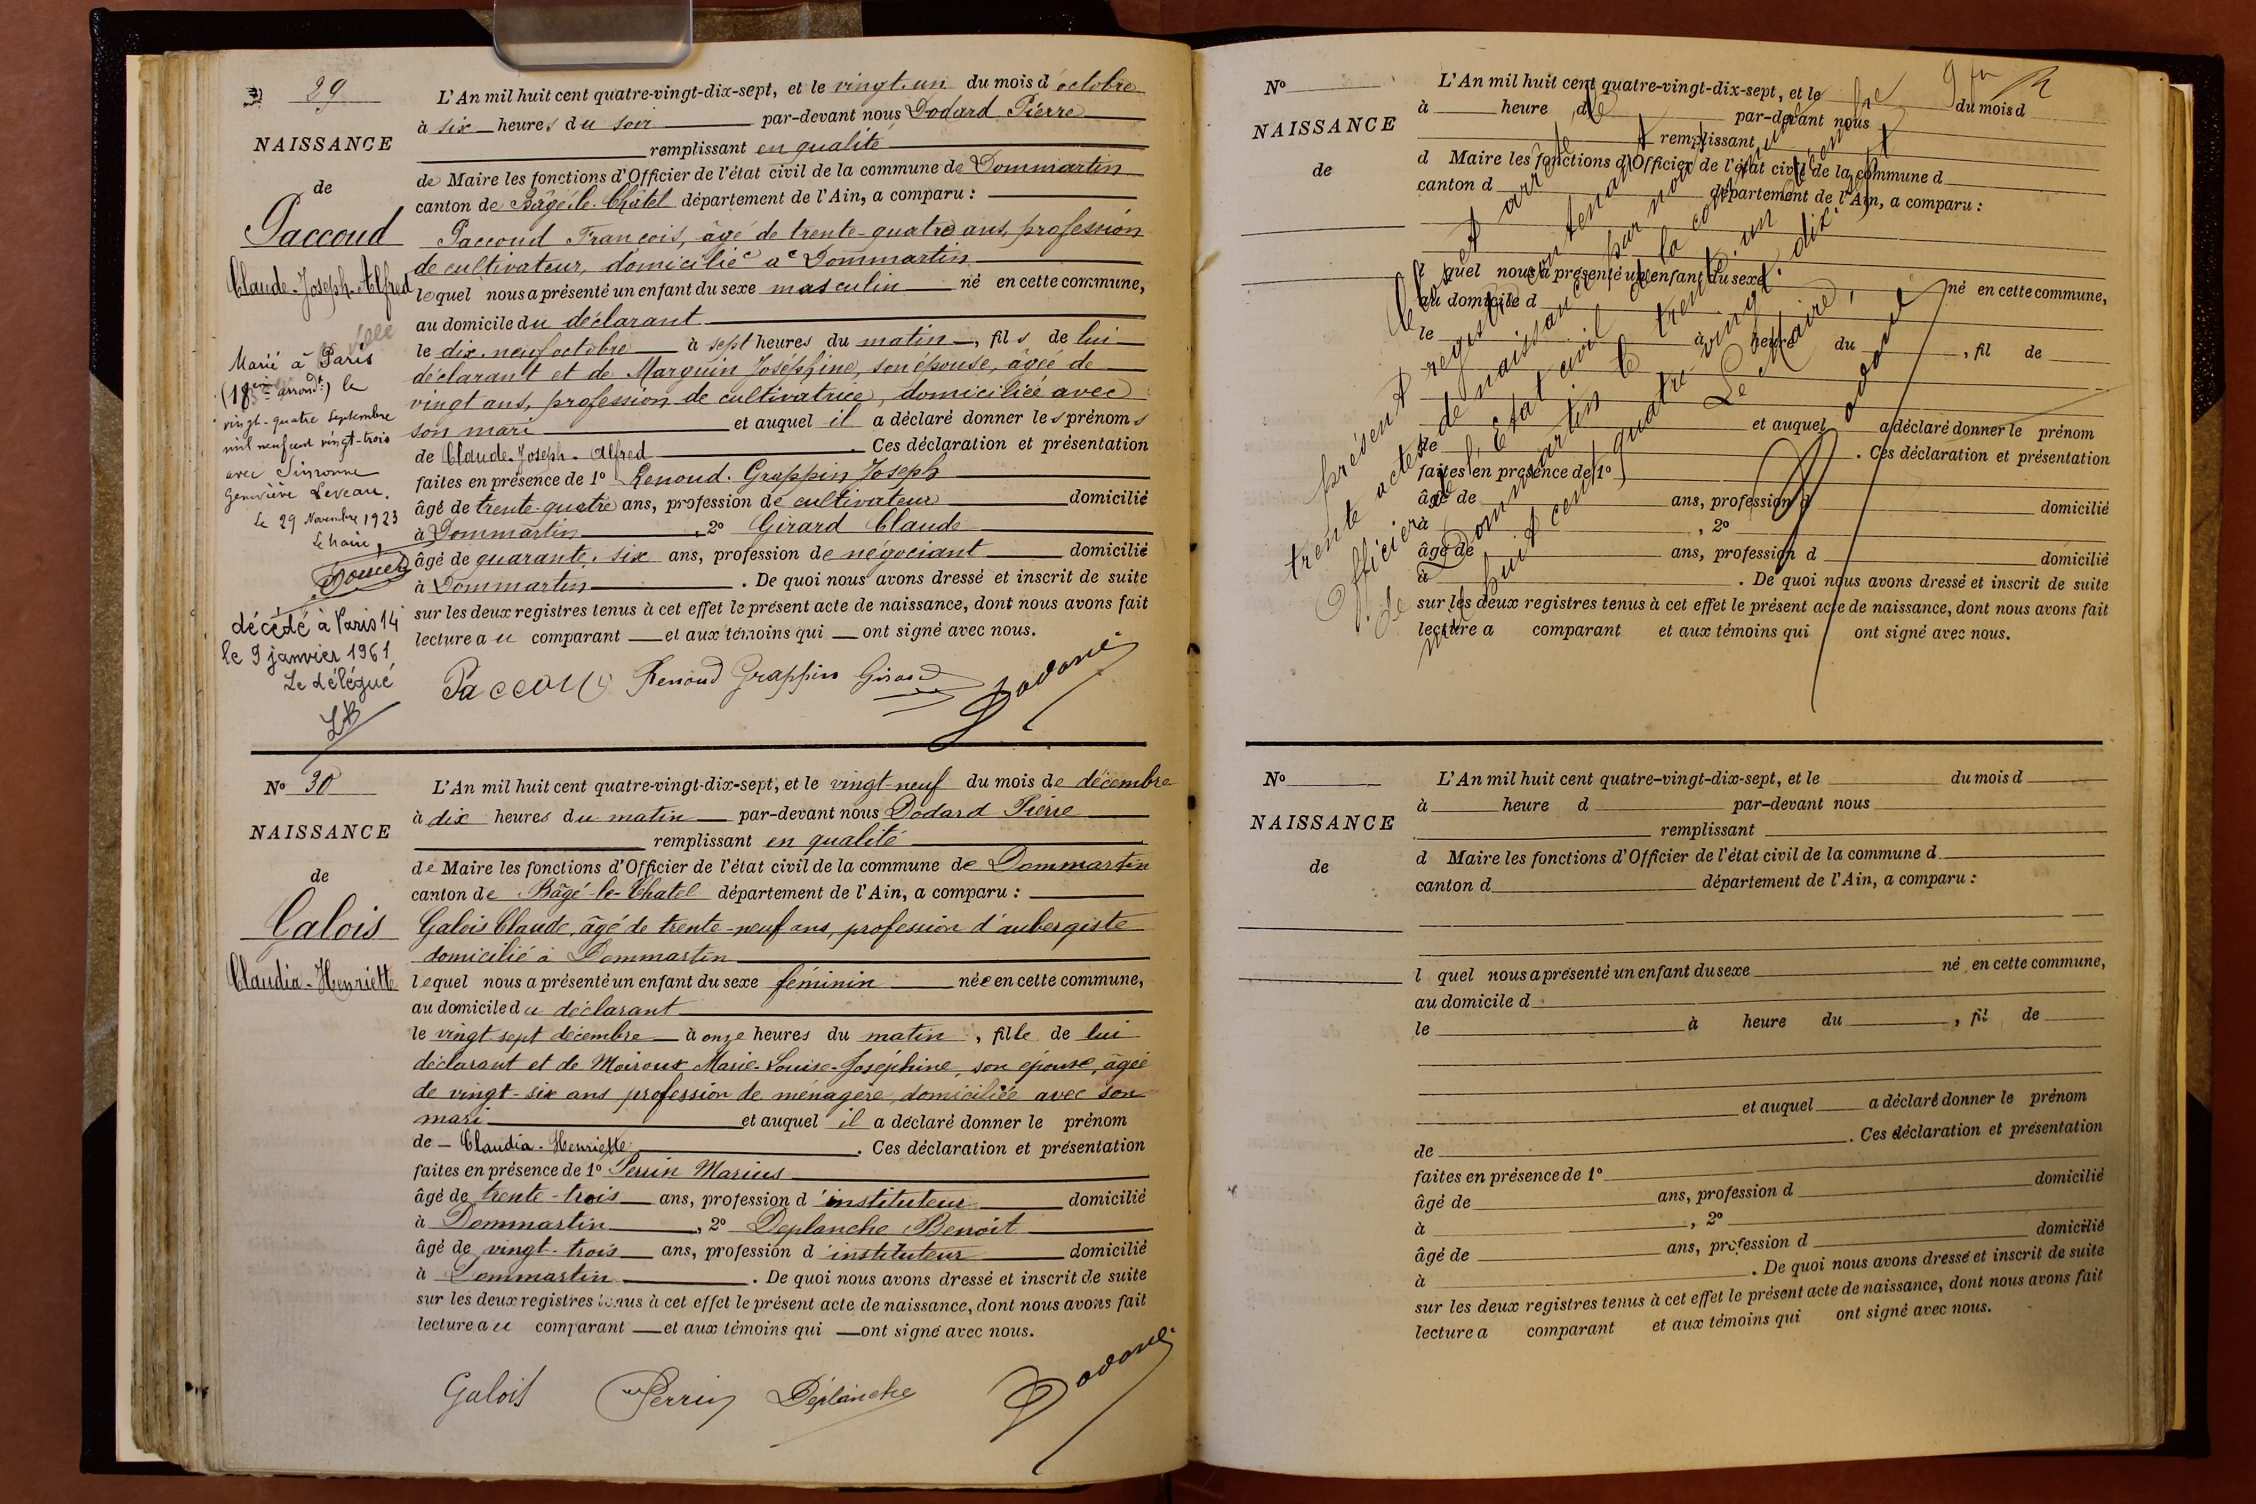 29
NAISSANCE
de
Paccoud
Claude-Joseph-Alfred
Marié à Paris
(18eme arrondt) le
vingt-quatre Septembre
mil neuf cent vingt-trois
avec Simonne
Geneviève Leveau.
Le 29 Novembre 1923
Le Maire,
décédé à Paris 14
le 9 janvier 1961
Le délégué
L'An mil huit cent quatre-vingt-dix-sept, et le vingt-un du mois d'octobre
à six heures du soir par-devant nous Dodard Pierre
remplissant en qualité
de Maire les fonctions d'Officier de l'état civil de la commune de Dommartin
canton de Bâgé-le-Châtel département de l'Ain, a comparu :
Paccoud François, âgé de trente-quatre ans, profession
de cultivateur, domicilié à Dommartin
lequel nous a présenté un enfant du sexe masculin né en cette commune,
au domicile du déclarant
le dix-neuf octobre à sept heures du matin, fils de lui
déclarant et de Marguin Joséphine, son épouse, âgée de
vingt ans, profession de cultivatrice, domiciliée avec
son mari et auquel il a déclaré donner les prénoms
de Claude-Joseph-Alfred. Ces déclaration et présentation
faites en présence de 1º Renoud-Grappin Joseph
âgé de trente-quatre ans, profession de cultivateur domicilié
à Dommartin, 2º Girard Claude
âgé de quarante-six ans, profession de négociant domicilié
à Dommartin. De quoi nous avons dressé et inscrit de suite
sur les deux registres tenus à cet effet le présent acte de naissance, dont nous avons fait
lecture au comparant et aux témoins qui ont signé avec nous.
Paccoud Renoud Grappin Girard Dodard
Nº 30
NAISSANCE
de
Galois
Claudia-Henriette
L'An mil huit cent quatre-vingt-dix-sept, et le vingt-neuf du mois de décembre
à dix heures du matin par-devant nous Dodard Pierre
remplissant en qualité
de Maire les fonctions d'Officier de l'état civil de la commune de Dommartin
canton de Bâgé-le-Chatel département de l'Ain, a comparu :
Galois Claude, âgé de trente-neuf ans, profession d'aubergiste
domicilié à Dommartin
lequel nous a présenté un enfant du sexe féminin née en cette commune,
au domicile du déclarant
le vingt sept décembre à onze heures du matin, fille de lui
déclarant et de Moiroux Marie-Louise-Joséphine, son épouse, âgée
de vingt-six ans profession de ménagère, domiciliée avec son
mari et auquel il a déclaré donner le prénom
de Claudia-Henriette. Ces déclaration et présentation
faites en présence de 1º Perrin Marius
âgé de trente-trois ans, profession d'instituteur domicilié
à Dommartin, 2º Deplanche Benoît
âgé de vingt-trois ans, profession d'instituteur domicilié
à Dommartin. De quoi nous avons dressé et inscrit de suite
sur les deux registres tenus à cet effet le présent acte de naissance, dont nous avons fait
lecture au comparant et aux témoins qui ont signé avec nous.
Galois Perrin Déplanche Dodard
Nº
NAISSANCE
de
L'An mil huit cent quatre-vingt-dix-sept, et le du mois d
à heure d par-devant nous
remplissant
d Maire les fonctions d'Officier de l'état civil de la commune d
canton d département de l'Ain, a comparu :
l quel nous a présenté un enfant du sexe né en cette commune,
au domicile d
le à heure du , fil de
et auquel a déclaré donner le prénom
de . Ces déclaration et présentation
faites en présence de 1º
âgé de ans, profession d domicilié
à , 2º
âgé de ans, profession d domicilié
à . De quoi nous avons dressé et inscrit de suite
sur les deux registres tenus à cet effet le présent acte de naissance, dont nous avons fait
lecture a comparant et aux témoins qui ont signé avec nous.
Clos et arrêté le
présent registre contenant
trente actes de naissance par nous
Officier de l'Etat civil de la commune
de Dommartin le trente-un décembre
mil huit cent quatre-vingt-dix-sept
Le Maire,
Dodard
Nº
NAISSANCE
de
L'An mil huit cent quatre-vingt-dix-sept, et le du mois d
à heure d par-devant nous
remplissant
d Maire les fonctions d'Officier de l'état civil de la commune d
canton d département de l'Ain, a comparu :
l quel nous a présenté un enfant du sexe né en cette commune,
au domicile d
le à heure du , fil de
et auquel a déclaré donner le prénom
de . Ces déclaration et présentation
faites en présence de 1º
âgé de ans, profession d domicilié
à , 2º
âgé de ans, profession d domicilié
à . De quoi nous avons dressé et inscrit de suite
sur les deux registres tenus à cet effet le présent acte de naissance, dont nous avons fait
lecture a comparant et aux témoins qui ont signé avec nous.